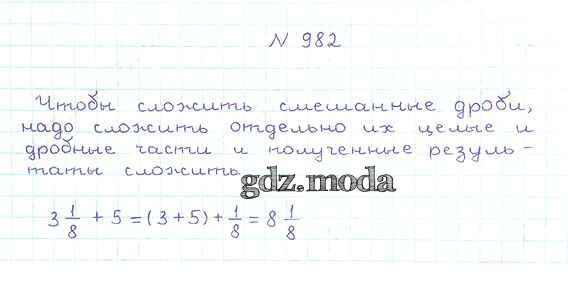 N 982
Чтобы сложить смешанные дроби,
надо сложить отдельно их целые и
дробные части и полученные резуль-
таты сложить.
gdz.moda
3 1/8 + 5 = (3 + 5) + 1/8 = 8 1/8